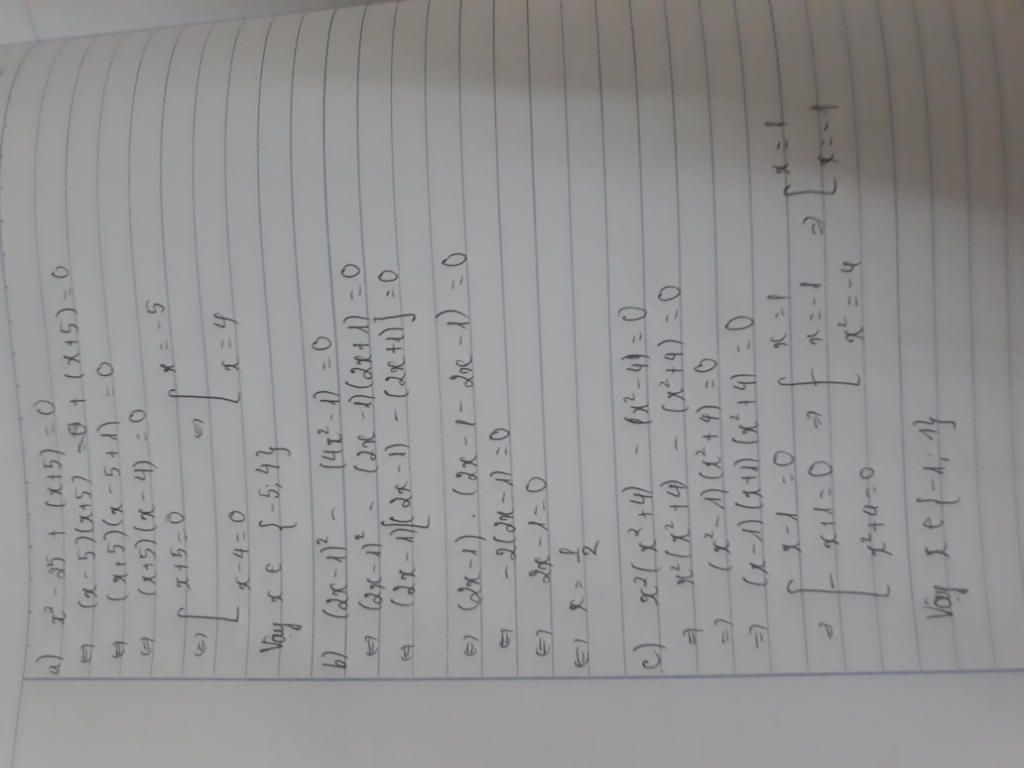 a) x² - 25 + (x+5) = 0
⇔ (x-5)(x+5) + (x+5) = 0
⇔ (x+5)(x-5+1) = 0
⇔ (x+5)(x-4) = 0
⇔ [ x+5=0 ⇔ [ x=-5
x-4=0 x=4
Vậy x ∈ {-5; 4}
b) (2x-1)² - (4x²-1) = 0
⇔ (2x-1)² - (2x-1)(2x+1) = 0
⇔ (2x-1)[(2x-1) - (2x+1)] = 0
⇔ (2x-1).(2x-1-2x-1) = 0
⇔ -2(2x-1) = 0
⇔ 2x-1=0
⇔ x = 1/2
c) x²(x²+4) - (x²-4) = 0
⇒ x²(x²+4) - (x²+4) = 0
⇒ (x²-1)(x²+4) = 0
⇒ (x-1)(x+1)(x²+4) = 0
⇒ [ x-1=0 ⇒ [ x=1 ⇒ [ x=1
x+1=0 x=-1 x=-1
x²+4=0 x²=-4
Vậy x ∈ {-1; 1}